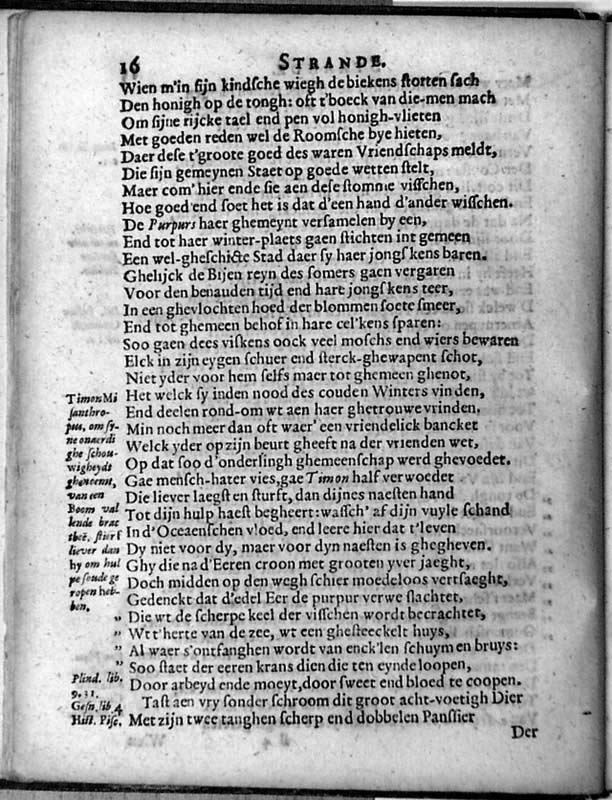 16 STRANDE.
Wien m'in sijn kindsche wiegh de biekens storten sach
Den honigh op de tongh: oft t'boeck van die-men mach
Om sijne rijcke tael end pen vol honigh-vlieten
Met goeden reden wel de Roomsche bye hieten,
Daer dese t'groote goed des waren Vriendschaps meldt,
Die sijn gemeynen Staet op goede wetten stelt,
Maer com' hier ende sie aen dese stomme visschen,
Hoe goed end soet het is dat d'een hand d'ander wisschen.
De Purpurs haer ghemeynt versamelen by een,
End tot haer winter-plaets gaen stichten int gemeen
Een wel-gheschicte Stad daer sy haer jongskens baren.
Ghelijck de Bijen reyn des somers gaen vergaren
Voor den benauden tijd end hare jongskens teer,
In een ghevlochten hoed der blommen soete smeer,
End tot ghemeen behof in hare cel'kens sparen:
Soo gaen dees viskens oock veel moschs end wiers bewaren
Elck in zijn eygen schuer end sterck-ghewapent schot,
Niet yder voor hem selfs maer tot ghemeen ghenot,
Het welck sy inden nood des couden Winters vinden,
End deelen rond-om wt aen haer ghetrouwe vrinden.
Min noch meer dan oft waer' een vriendelick bancket
Welck yder op zijn beurt gheeft na der vrienden wet,
Op dat soo d'onderlingh ghemeenschap werd ghevoedet.
Gae mensch-hater vies, gae Timon half verwoedet
Die liever laegst en sturft, dan dijnes naesten hand
Tot dijn hulp haest begheert: wassch' af dijn vuyle schand
In d'Oceaenschen vloed, end leere hier dat t'leven
Dy niet voor dy, maer voor dyn naesten is ghegheven.
Ghy die na d'Eeren croon met grooten yver jaeght,
Doch midden op den wegh schier moedeloos vertsaeght,
Gedenckt dat d'edel Eer de purpur verwe slachtet,
„ Die wt de scherpe keel der visschen wordt beerachtet,
„ Wt t'herte van de zee, wt een ghesteeckelt huys,
„ Al waer s'ontfanghen wordt van enck'len schuym en bruys:
„ Soo staet der eeren krans dien die ten eynde loopen,
Door arbeyd ende moeyt, door sweet end bloed te coopen.
Tast aen vry sonder schroom dit groot acht-voetigh Dier
Met zijn twee tanghen scherp end dobbelen Panssier
Der
Timon Mi
santhro-
pus, om sy-
ne onaerdi
ghe schou-
wigheydt
ghenoemt,
van een
Boom val
lende brac
thẽ. stierf
liever dan
hy om hul
pe soude ge
ropen heb-
ben.
Plind. lib.
9. 31.
Gesn. lib 4
Hist. Pisc.